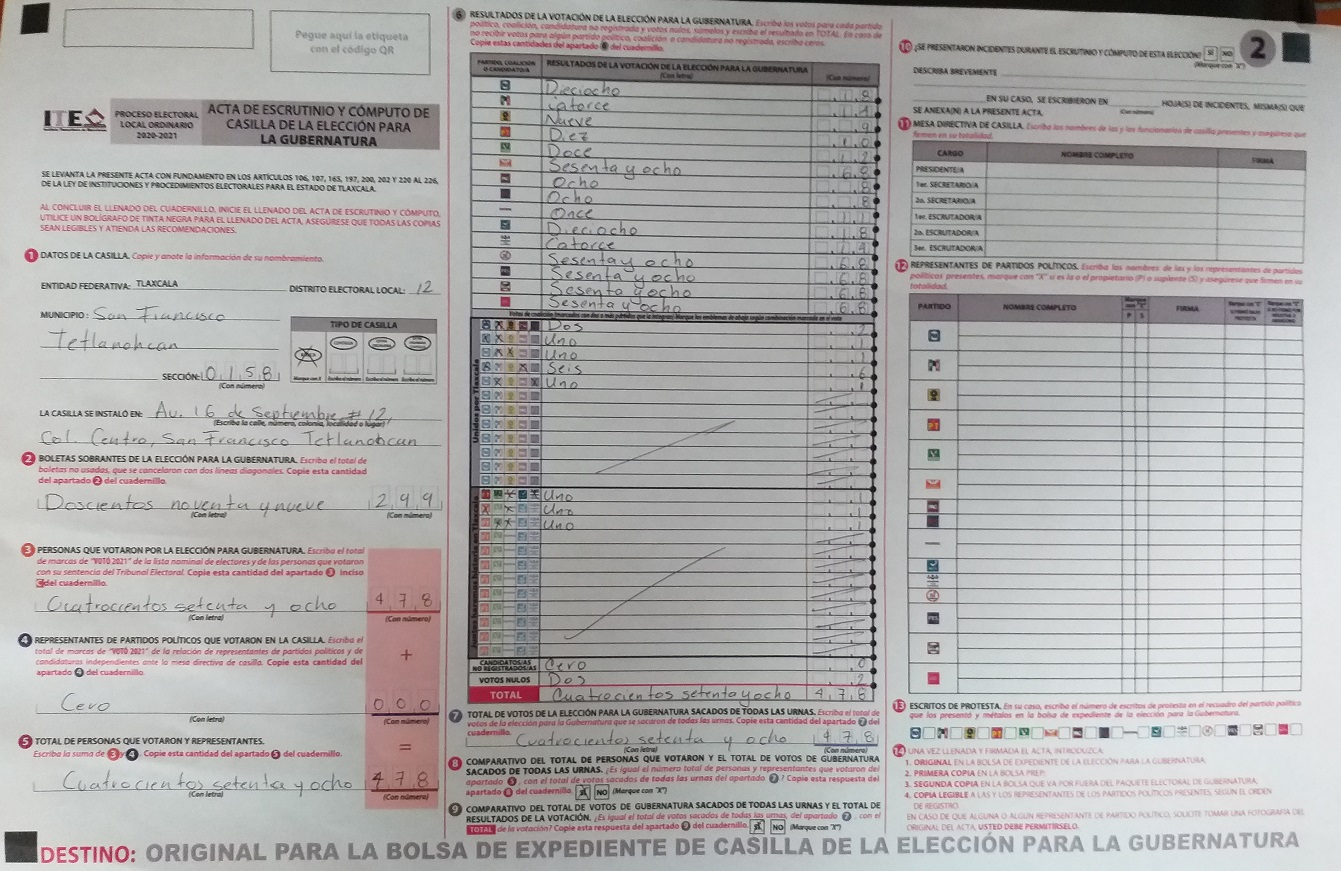 Pegue aquí la etiqueta
con el código QR
ITE
PROCESO ELECTORAL
LOCAL ORDINARIO
2020-2021
ACTA DE ESCRUTINIO Y CÓMPUTO DE
CASILLA DE LA ELECCIÓN PARA
LA GUBERNATURA
SE LEVANTA LA PRESENTE ACTA CON FUNDAMENTO EN LOS ARTÍCULOS 106, 107, 165, 197, 200, 202 Y 220 AL 226,
DE LA LEY DE INSTITUCIONES Y PROCEDIMIENTOS ELECTORALES PARA EL ESTADO DE TLAXCALA.
AL CONCLUIR EL LLENADO DEL CUADERNILLO, INICIE EL LLENADO DEL ACTA DE ESCRUTINIO Y CÓMPUTO,
UTILICE UN BOLÍGRAFO DE TINTA NEGRA PARA EL LLENADO DEL ACTA, ASEGÚRESE QUE TODAS LAS COPIAS
SEAN LEGIBLES Y ATIENDA LAS RECOMENDACIONES.
1 DATOS DE LA CASILLA. Copie y anote la información de su nombramiento.
ENTIDAD FEDERATIVA: TLAXCALA DISTRITO ELECTORAL LOCAL: 12
MUNICIPIO: San Francisco
Tetlanohcan
TIPO DE CASILLA
SECCIÓN: 0158
(Con número)
LA CASILLA SE INSTALÓ EN: Av. 16 de Septiembre #12,
(Escriba la calle, número, colonia, localidad o lugar)
Col. Centro, San Francisco Tetlanohcan
2 BOLETAS SOBRANTES DE LA ELECCIÓN PARA LA GUBERNATURA. Escriba el total de
boletas no usadas, que se cancelaron con dos líneas diagonales. Copie esta cantidad
del apartado 2 del cuadernillo.
Doscientos noventa y nueve 299
(Con letra) (Con número)
3 PERSONAS QUE VOTARON POR LA ELECCIÓN PARA GUBERNATURA. Escriba el total
de marcas de "VOTÓ 2021" de la lista nominal de electores y de las personas que votaron
con su sentencia del Tribunal Electoral. Copie esta cantidad del apartado 3 inciso
C del cuadernillo.
Cuatrocientos setenta y ocho 478
(Con letra) (Con número)
4 REPRESENTANTES DE PARTIDOS POLÍTICOS QUE VOTARON EN LA CASILLA. Escriba el
total de marcas de "VOTÓ 2021" de la relación de representantes de partidos políticos y de
candidaturas independientes ante la mesa directiva de casilla. Copie esta cantidad del
apartado 4 del cuadernillo.
+
Cero 000
(Con letra) (Con número)
5 TOTAL DE PERSONAS QUE VOTARON Y REPRESENTANTES.
Escriba la suma de 3 y 4. Copie esta cantidad del apartado 5 del cuadernillo.
=
Cuatrocientos setenta y ocho 478
(Con letra) (Con número)
6 RESULTADOS DE LA VOTACIÓN DE LA ELECCIÓN PARA LA GUBERNATURA. Escriba los votos para cada partido
político, coalición, candidatura no registrada y votos nulos, súmelos y escriba el resultado en TOTAL. En caso de
no recibir votos para algún partido político, coalición o candidatura no registrada, escriba ceros.
Copie estas cantidades del apartado 6 del cuadernillo.
PARTIDO, COALICIÓN O CANDIDATO/A RESULTADOS DE LA VOTACIÓN DE LA ELECCIÓN PARA LA GUBERNATURA
(Con letra) (Con número)
Dieciocho 18
Catorce 14
Nueve 9
Diez 10
Doce 12
Sesenta y ocho 68
Ocho 8
Ocho 8
Once 11
Dieciocho 18
Catorce 14
Sesenta y ocho 68
Sesenta y ocho 68
Sesenta y ocho 68
Sesenta y ocho 68
Unidos por Tlaxcala
Dos 2
Uno 1
Uno 1
Seis 6
Uno 1
Juntos haremos historia en Tlaxcala
Uno 1
Uno 1
Uno 1
CANDIDATOS/AS NO REGISTRADOS/AS Cero 0
VOTOS NULOS Dos 2
TOTAL Cuatrocientos setenta y ocho 478
7 TOTAL DE VOTOS DE LA ELECCIÓN PARA LA GUBERNATURA SACADOS DE TODAS LAS URNAS. Escriba el total de
votos de la elección para la Gubernatura que se sacaron de todas las urnas. Copie esta cantidad del apartado 7 del
cuadernillo.
Cuatrocientos setenta y ocho 478
(Con letra) (Con número)
8 COMPARATIVO DEL TOTAL DE PERSONAS QUE VOTARON Y EL TOTAL DE VOTOS DE GUBERNATURA
SACADOS DE TODAS LAS URNAS. ¿Es igual el número total de personas y representantes que votaron del
apartado 5, con el total de votos sacados de todas las urnas del apartado 7? Copie esta respuesta del
apartado 8 del cuadernillo. SÍ NO (Marque con "X")
9 COMPARATIVO DEL TOTAL DE VOTOS DE GUBERNATURA SACADOS DE TODAS LAS URNAS Y EL TOTAL DE
RESULTADOS DE LA VOTACIÓN. ¿Es igual el total de votos sacados de todas las urnas, del apartado 7, con el
TOTAL de la votación? Copie esta respuesta del apartado 9 del cuadernillo. SÍ NO (Marque con "X")
10 ¿SE PRESENTARON INCIDENTES DURANTE EL ESCRUTINIO Y CÓMPUTO DE ESTA ELECCIÓN? SÍ NO
(Marque con "X")
2
DESCRIBA BREVEMENTE
EN SU CASO, SE ESCRIBIERON EN HOJA(S) DE INCIDENTES, MISMA(S) QUE
SE ANEXA(N) A LA PRESENTE ACTA. (Con número)
11 MESA DIRECTIVA DE CASILLA. Escriba los nombres de las y los funcionarios de casilla presentes y asegúrese que
firmen en su totalidad.
CARGO NOMBRE COMPLETO FIRMA
PRESIDENTE/A
1er. SECRETARIO/A
2o. SECRETARIO/A
1er. ESCRUTADOR/A
2o. ESCRUTADOR/A
3er. ESCRUTADOR/A
12 REPRESENTANTES DE PARTIDOS POLÍTICOS. Escriba los nombres de las y los representantes de partidos
políticos presentes, marque con "X" si es la o el propietario (P) o suplente (S) y asegúrese que firmen en su
totalidad.
PARTIDO NOMBRE COMPLETO P S FIRMA
13 ESCRITOS DE PROTESTA. En su caso, escriba el número de escritos de protesta en el recuadro del partido político
que los presentó y métalos en la bolsa de expediente de la elección para la Gubernatura.
14 UNA VEZ LLENADA Y FIRMADA EL ACTA, INTRODUZCA:
1. ORIGINAL EN LA BOLSA DE EXPEDIENTE DE LA ELECCIÓN PARA LA GUBERNATURA.
2. PRIMERA COPIA EN LA BOLSA PREP.
3. SEGUNDA COPIA EN LA BOLSA QUE VA POR FUERA DEL PAQUETE ELECTORAL DE GUBERNATURA.
4. COPIA LEGIBLE A LAS Y LOS REPRESENTANTES DE LOS PARTIDOS POLÍTICOS PRESENTES, SEGÚN EL ORDEN
DE REGISTRO.
EN CASO DE QUE ALGUNA O ALGÚN REPRESENTANTE DE PARTIDO POLÍTICO, SOLICITE TOMAR UNA FOTOGRAFÍA DEL
ORIGINAL DEL ACTA, USTED DEBE PERMITÍRSELO.
DESTINO: ORIGINAL PARA LA BOLSA DE EXPEDIENTE DE CASILLA DE LA ELECCIÓN PARA LA GUBERNATURA